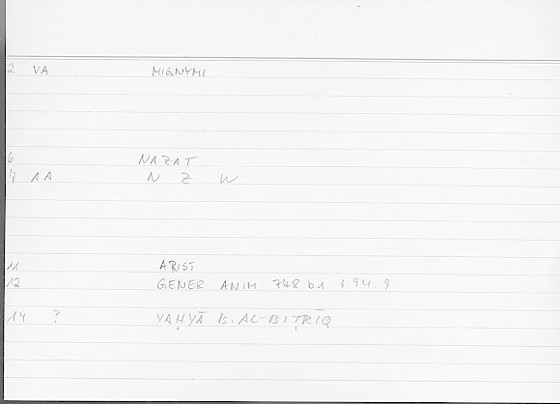 2 VA MIGNYMI
6 NAZAT
7 AA N Z W
11 ARIST
12 GENER ANIM 748 b1 § 94.9
14 ? YAḤYĀ B. AL-BIṬRĪQ